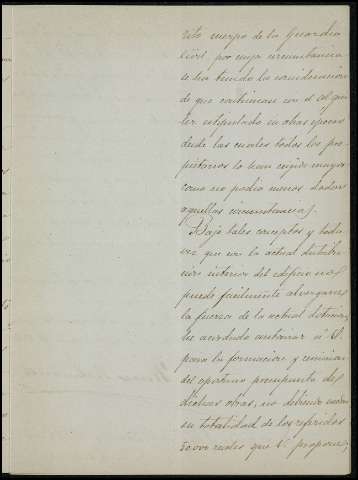 rito cuerpo de la Guardia
Civil por cuya circunstancia
se ha tenido la consideracion
de que continuen con el alqui-
ler estipulado en otras epocas
desde las cuales todos los pro-
pietarios lo han exigido mayor
como no podia menos dadas
aquellas circunstancias.
Bajo tales conceptos y toda
vez que con la actual distribu-
cion interior del edificio no
puede facilmente alvergarse
la fuerza de la actual dotacion,
he acordado autorizar á V.
para la formacion y remision
del oportuno presupuesto de
dichas obras, no debiendo
su totalidad de los referidos
50.000 reales que V. propone,